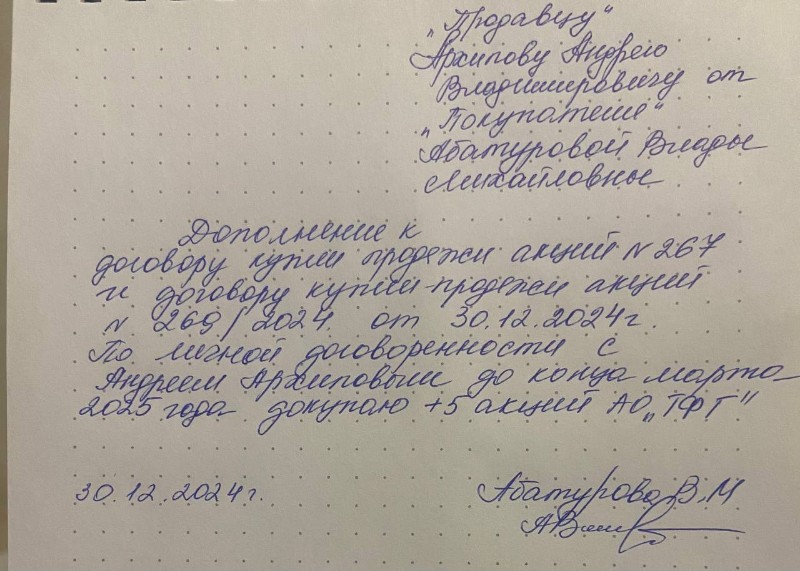 „Продавцу"
Архипову Андрею
Владимировичу от
„Покупателя"
Абатуровой Влады
Михайловны
Дополнение к
договору купли продажи акций N 267
и договору купли-продажи акций
N 269/2024 от 30.12.2024г.
По личной договоренности с
Андреем Архиповым до конца марта
2025 года докупаю +5 акций АО „ТФТ"
30.12.2024г.
Абатурова В.М